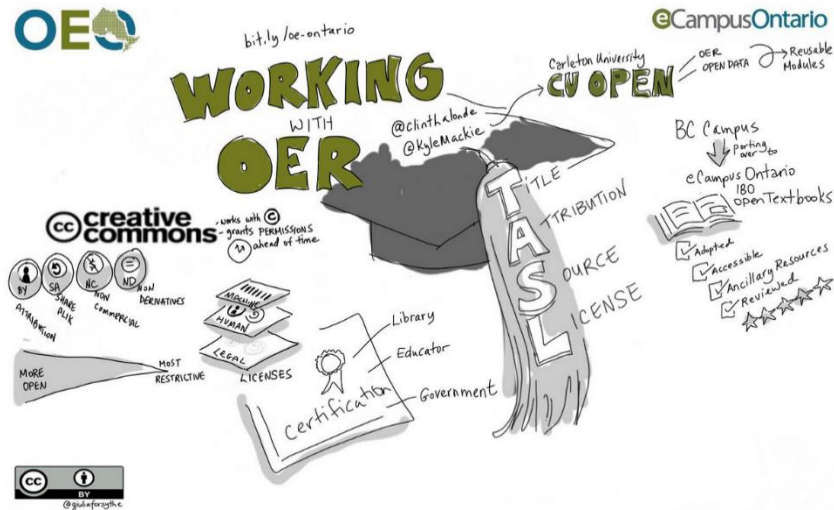 OEO
eCampusOntario
bit.ly/oe-ontario
WORKING
WITH
OER
@clinthalonde
@KyleMackie
Carleton University
CU OPEN
OER
OPEN DATA
Reusable
Modules
BC Campus
porting
over to
eCampus Ontario
180
open Textbooks
Adopted
Accessible
Ancillary Resources
Reviewed
TITLE
ATTRIBUTION
SOURCE
LICENSE
cc creative
commons
- works with ©
- grants PERMISSIONS
ahead of time
BY
SA
NC
ND
ATTRIBUTION
SHARE
ALIK
NON
COMMERCIAL
NON
DERIVATIVES
MORE
OPEN
MOST
RESTRICTIVE
MACHINE
HUMAN
LEGAL
LICENSES
Certification
Library
Educator
Government
cc
BY
@giuliaforsythe